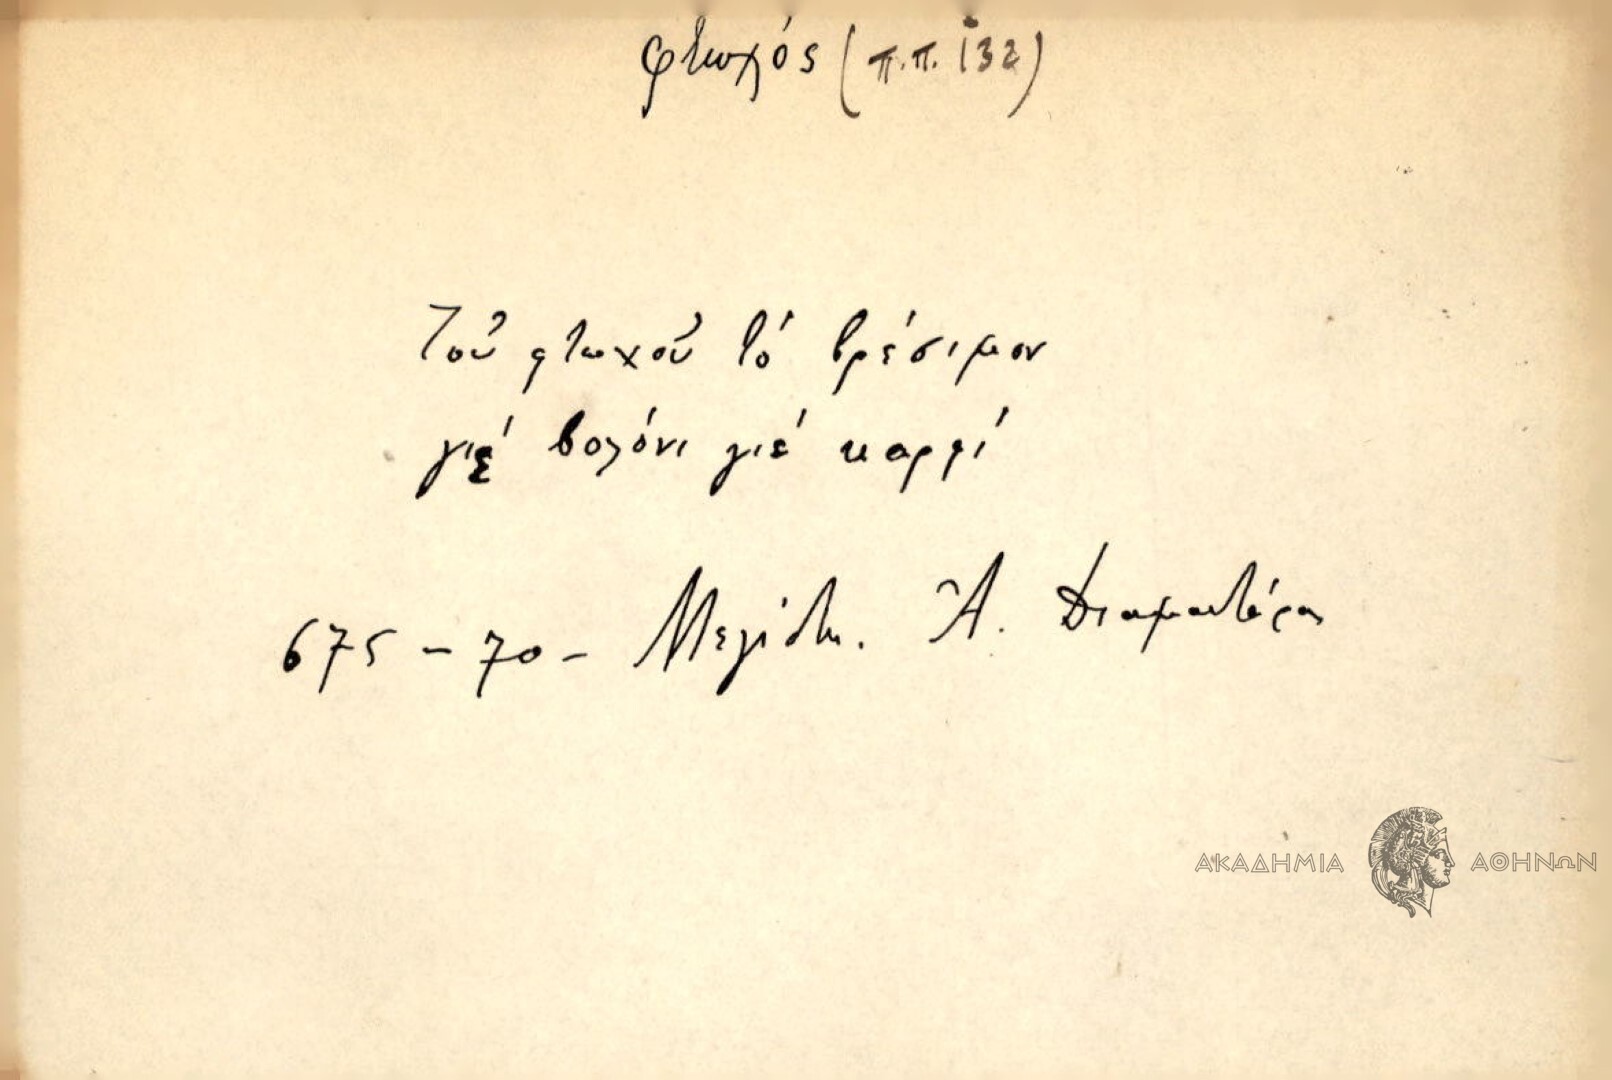 φτωχός (π.π. 132)
Τοῦ φτωχοῦ τό βρέσιμον
γιέ βολόνι γιέ καρφί
675 - 70 - Μεγίστη. Ἀ. Διαμαντάρας
ΑΚΑΔΗΜΙΑ ΑΘΗΝΩΝ